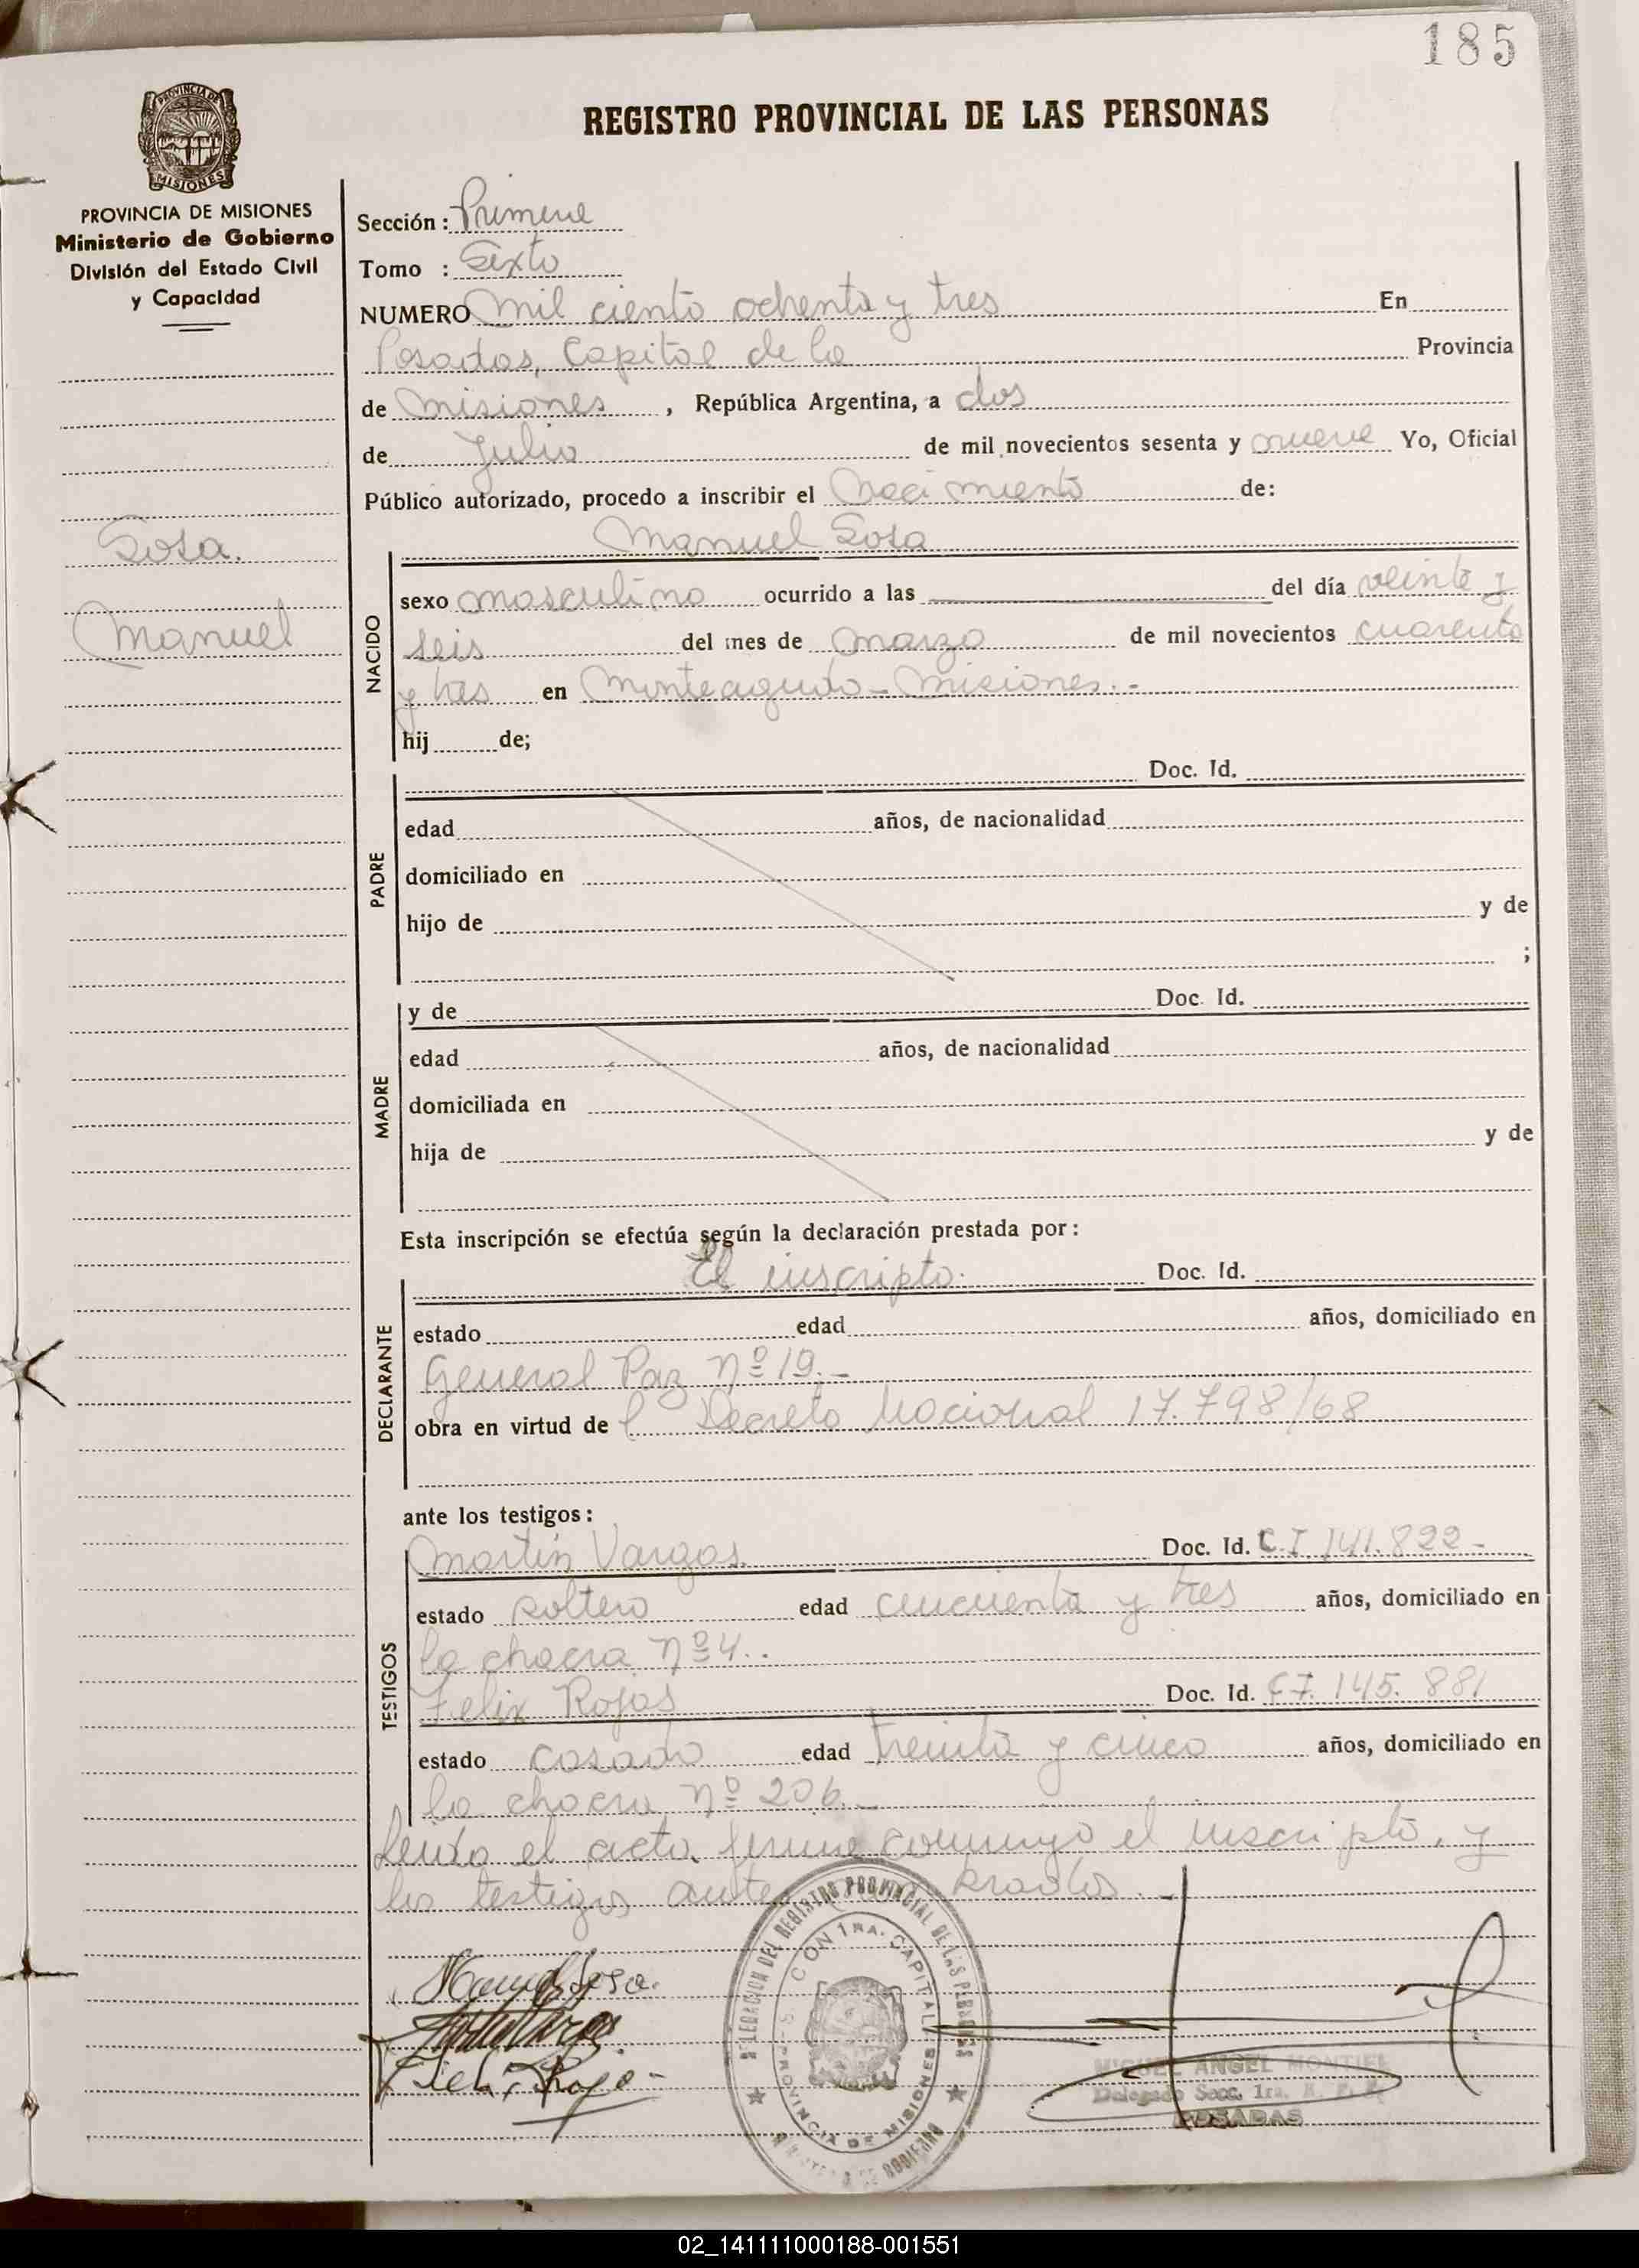 185
REGISTRO PROVINCIAL DE LAS PERSONAS
PROVINCIA DE
MISIONES
PROVINCIA DE MISIONES
Ministerio de Gobierno
División del Estado Civil
y Capacidad
Sosa.
Manuel
Sección: Primera
Tomo : Sexto
NUMERO mil ciento ochenta y tres En
Posadas, Capital de la Provincia
de Misiones, República Argentina, a dos
de Julio de mil novecientos sesenta y nueve Yo, Oficial
Público autorizado, procedo a inscribir el Nacimiento de:
Manuel Sosa
NACIDO
sexo masculino ocurrido a las del día veinte y
seis del mes de marzo de mil novecientos cuarenta
y tres en Monteagudo - Misiones.-
hij de;
PADRE
Doc. Id.
edad años, de nacionalidad
domiciliado en
hijo de y de
;
MADRE
y de Doc. Id.
edad años, de nacionalidad
domiciliada en
hija de y de
Esta inscripción se efectúa según la declaración prestada por:
DECLARANTE
El inscripto. Doc. Id.
estado edad años, domiciliado en
General Paz nº 19.-
obra en virtud de l Decreto Nacional 17.798/68
ante los testigos:
TESTIGOS
Martín Vargas. Doc. Id. C.I. 141.822-
estado soltero edad cincuenta y tres años, domiciliado en
la chacra nº 4..
Felix Rojas Doc. Id. C.I. 145.881
estado casado edad treinta y cinco años, domiciliado en
la chacra nº 206.-
Leida el acta, firma conmigo el inscripto, y
los testigos ante
Manuel Sosa.
DELEGACION DEL REGISTRO PROVINCIAL DE LAS PERSONAS
1RA. CAPITAL
PROVINCIA DE MISIONES
MIGUEL ANGEL MONTIEL
Delegado Secc. 1ra. R. P. P.
POSADAS
02_141111000188-001551